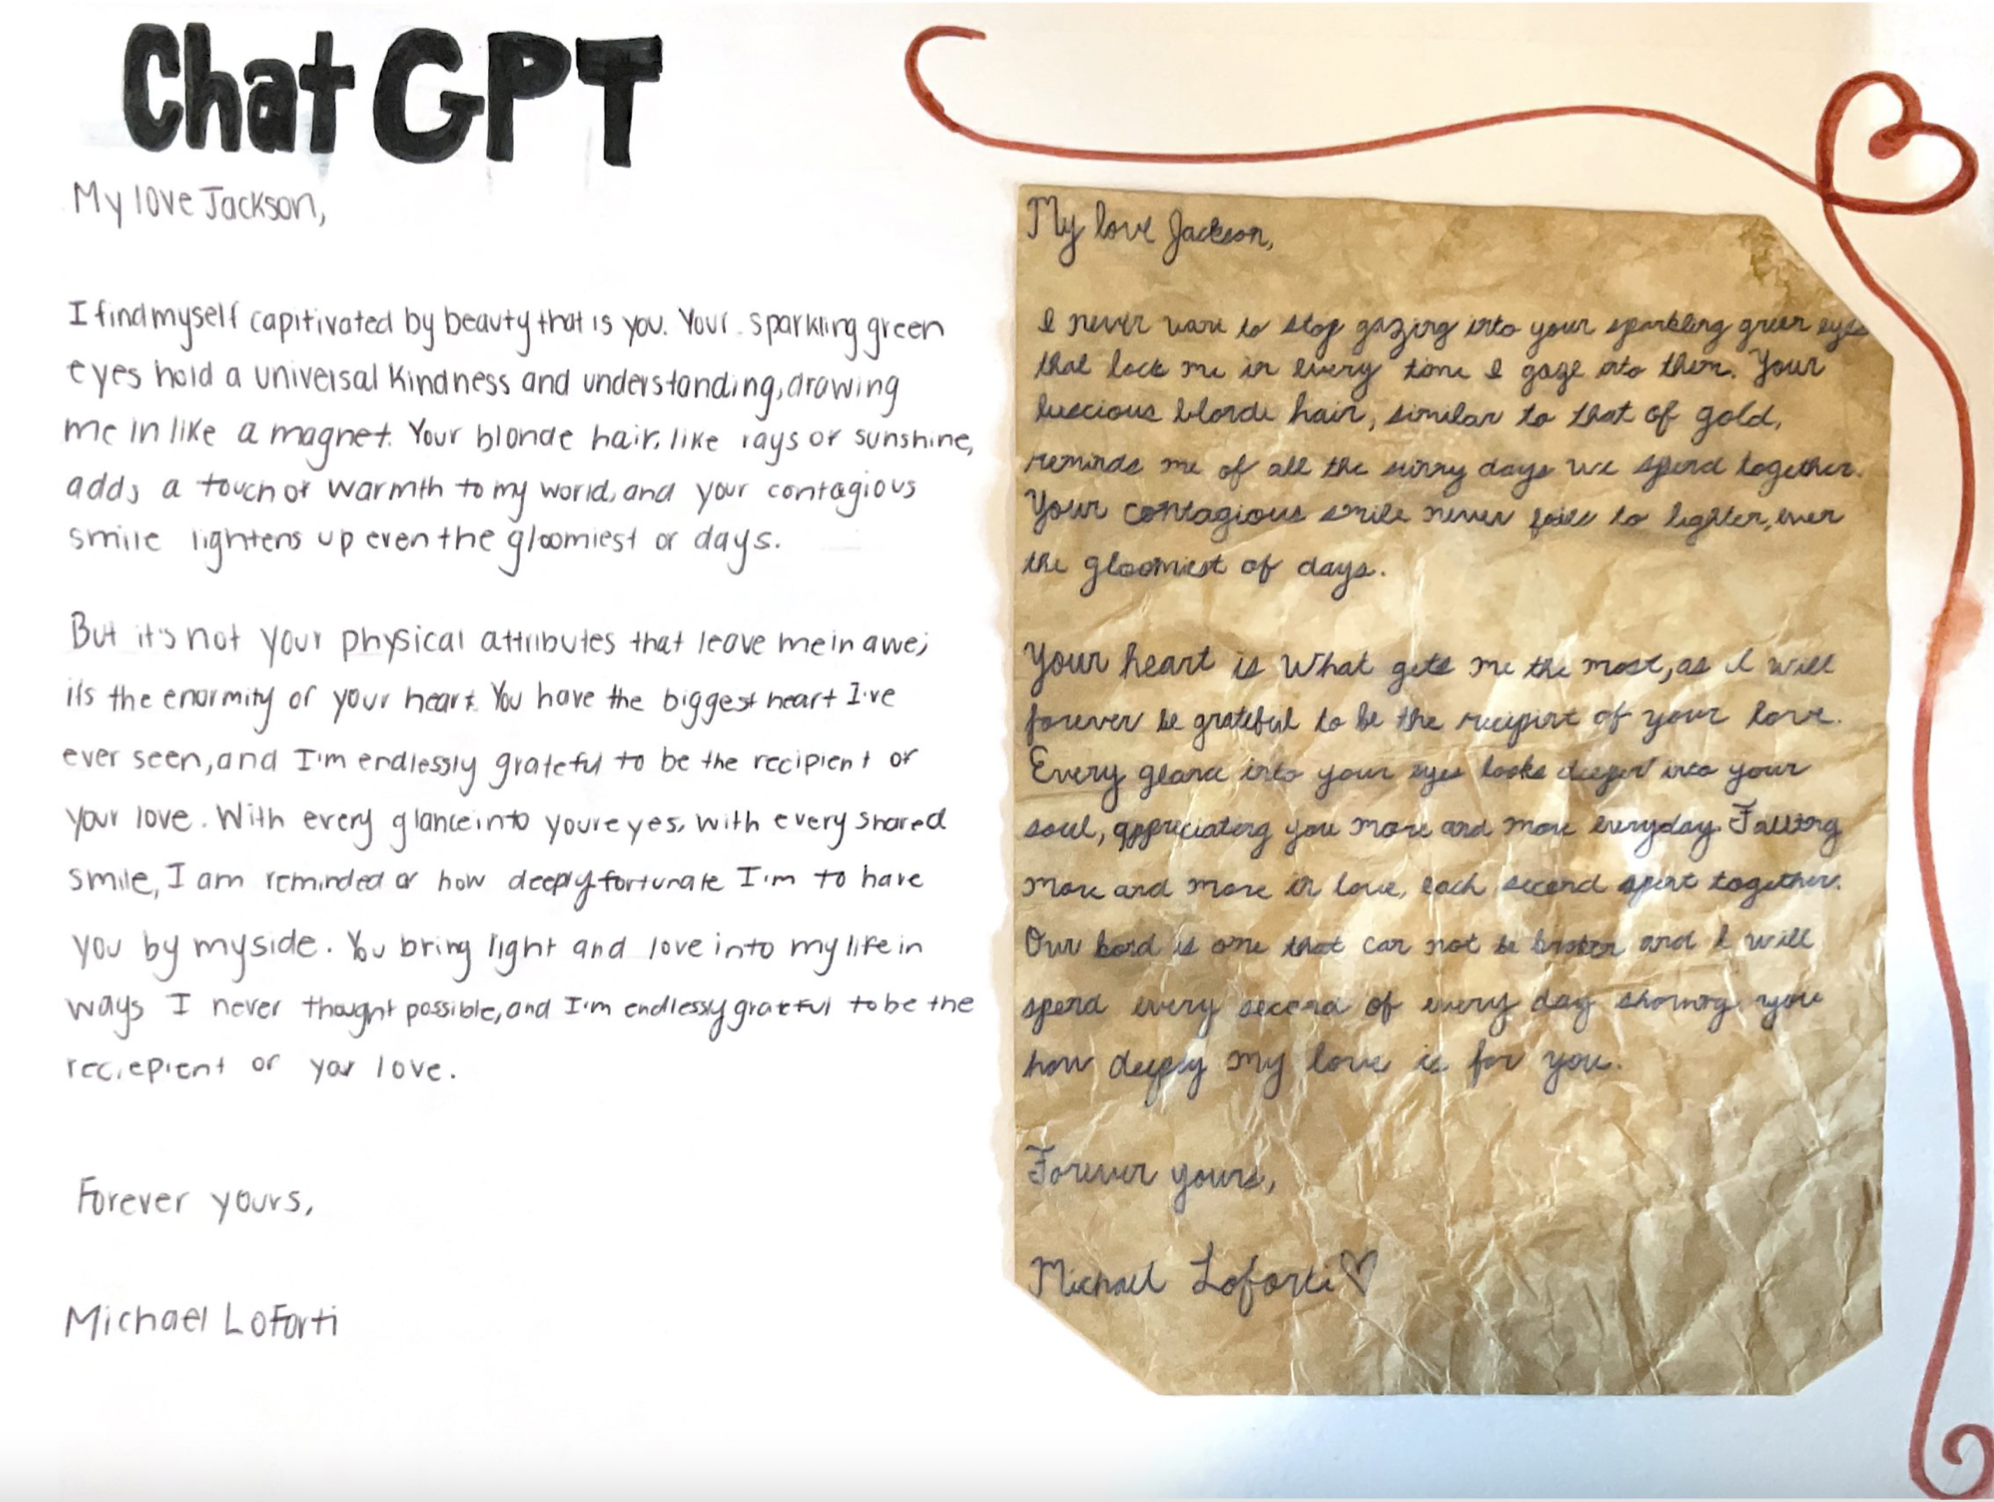 ChatGPT
My love Jackson,
I find myself capitivated by beauty that is you. Your sparkling green
eyes hold a universal kindness and understanding, drawing
me in like a magnet. Your blonde hair, like rays of sunshine,
adds a touch of warmth to my world, and your contagious
smile lightens up even the gloomiest of days.
But it's not your physical attributes that leave me in awe;
its the enormity of your heart. You have the biggest heart I've
ever seen, and I'm endlessly grateful to be the recipient of
your love. With every glance into youre yes, with every shared
smile, I am reminded of how deeply fortunate I'm to have
you by my side. You bring light and love into my life in
ways I never thought possible, and I'm endlessly grateful to be the
reciepient of your love.
Forever yours,
Michael LoForti
My love Jackson,
I never want to stop gazing into your sparkling green eyes
that lock me in every time I gaze into them. Your
luscious blonde hair, similar to that of gold,
reminds me of all the sunny days we spend together.
Your contagious smile never fails to lighten, even
the gloomiest of days.
Your heart is what gets me the most, as I will
forever be grateful to be the recipint of your love.
Every glance into your eyes looks deeper into your
soul, appreciating you more and more everyday. Falling
more and more in love, each second spent together.
Our bond is one that can not be broken and I will
spend every second of every day showing you
how deeply my love is for you.
Forever yours,
Michael Loforti♡